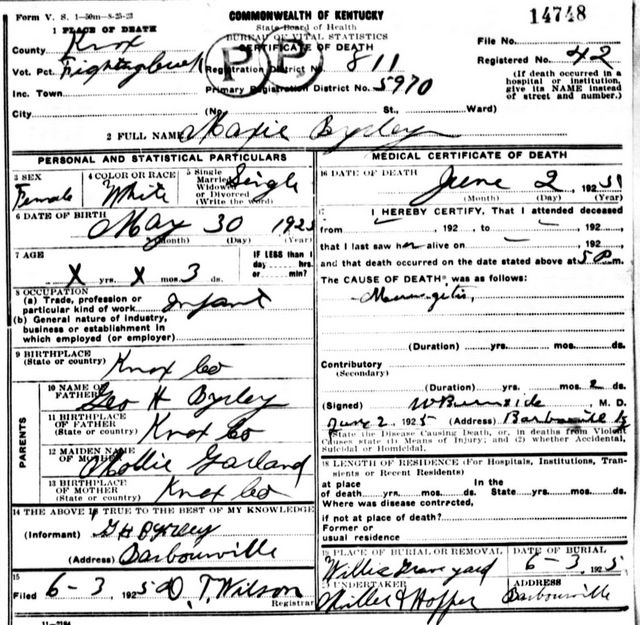 Form V. S. 1—50m—8-25-23
COMMONWEALTH OF KENTUCKY
14748
1 PLACE OF DEATH
State Board of Health
BUREAU OF VITAL STATISTICS
CERTIFICATE OF DEATH
P P
County Knox
File No.
Registered No. 42
Vot. Pct.
Registration District No. 811
(If death occurred in a hospital or institution, give its NAME instead of street and number.)
Inc. Town
Primary Registration District No. 5970
City (No St., Ward)
2 FULL NAME Maxie Byrley
PERSONAL AND STATISTICAL PARTICULARS
3 SEX Female
4 COLOR OR RACE White
5 Single Married Widowed or Divorced (Write the word) Single
6 DATE OF BIRTH May 30 1925
(Month) (Day) (Year)
7 AGE
X yrs. X mos. 3 ds.
IF LESS than 1 day hrs. or min.?
8 OCCUPATION
(a) Trade, profession or particular kind of work Infant
(b) General nature of industry, business or establishment in which employed (or employer)
9 BIRTHPLACE
(State or country) Knox Co
PARENTS
10 NAME OF FATHER Geo H Byrley
11 BIRTHPLACE OF FATHER
(State or country) Knox Co
12 MAIDEN NAME OF MOTHER Mollie Garland
13 BIRTHPLACE OF MOTHER
(State or country) Knox Co
14 THE ABOVE IS TRUE TO THE BEST OF MY KNOWLEDGE
(Informant) G H Byrley
(Address) Barbourville
15
Filed 6-3, 1925 O. T. Wilson
Registrar
11-2184
MEDICAL CERTIFICATE OF DEATH
16 DATE OF DEATH
June 2, 1925
(Month) (Day) (Year)
17 I HEREBY CERTIFY, That I attended deceased
from , 192 , to , 192 ,
that I last saw her alive on , 192 ,
and that death occurred on the date stated above at 5 P m.
The CAUSE OF DEATH* was as follows:
(Duration) yrs. mos. ds.
Contributory
(Secondary)
(Duration) yrs. mos. 2 ds.
(Signed) W Burnside, M. D.
June 2, 1925 (Address) Barbourville Ky
*State the Disease Causing Death, or, in deaths from Violent Causes state (1) Means of Injury; and (2) whether Accidental, Suicidal or Homicidal.
18 LENGTH OF RESIDENCE (For Hospitals, Institutions, Transients or Recent Residents)
at place of death yrs. mos. ds.
In the State yrs. mos. ds.
Where was disease contracted,
if not at place of death?
Former or usual residence
19 PLACE OF BURIAL OR REMOVAL
DATE OF BURIAL
Graveyard 6-3, 1925
UNDERTAKER
ADDRESS
Miller & Hopper Barbourville